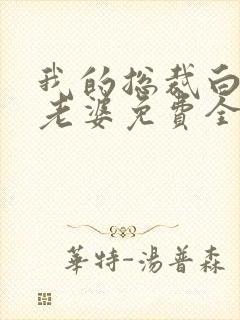 我的总裁白
老婆免費全
華特-湯普森